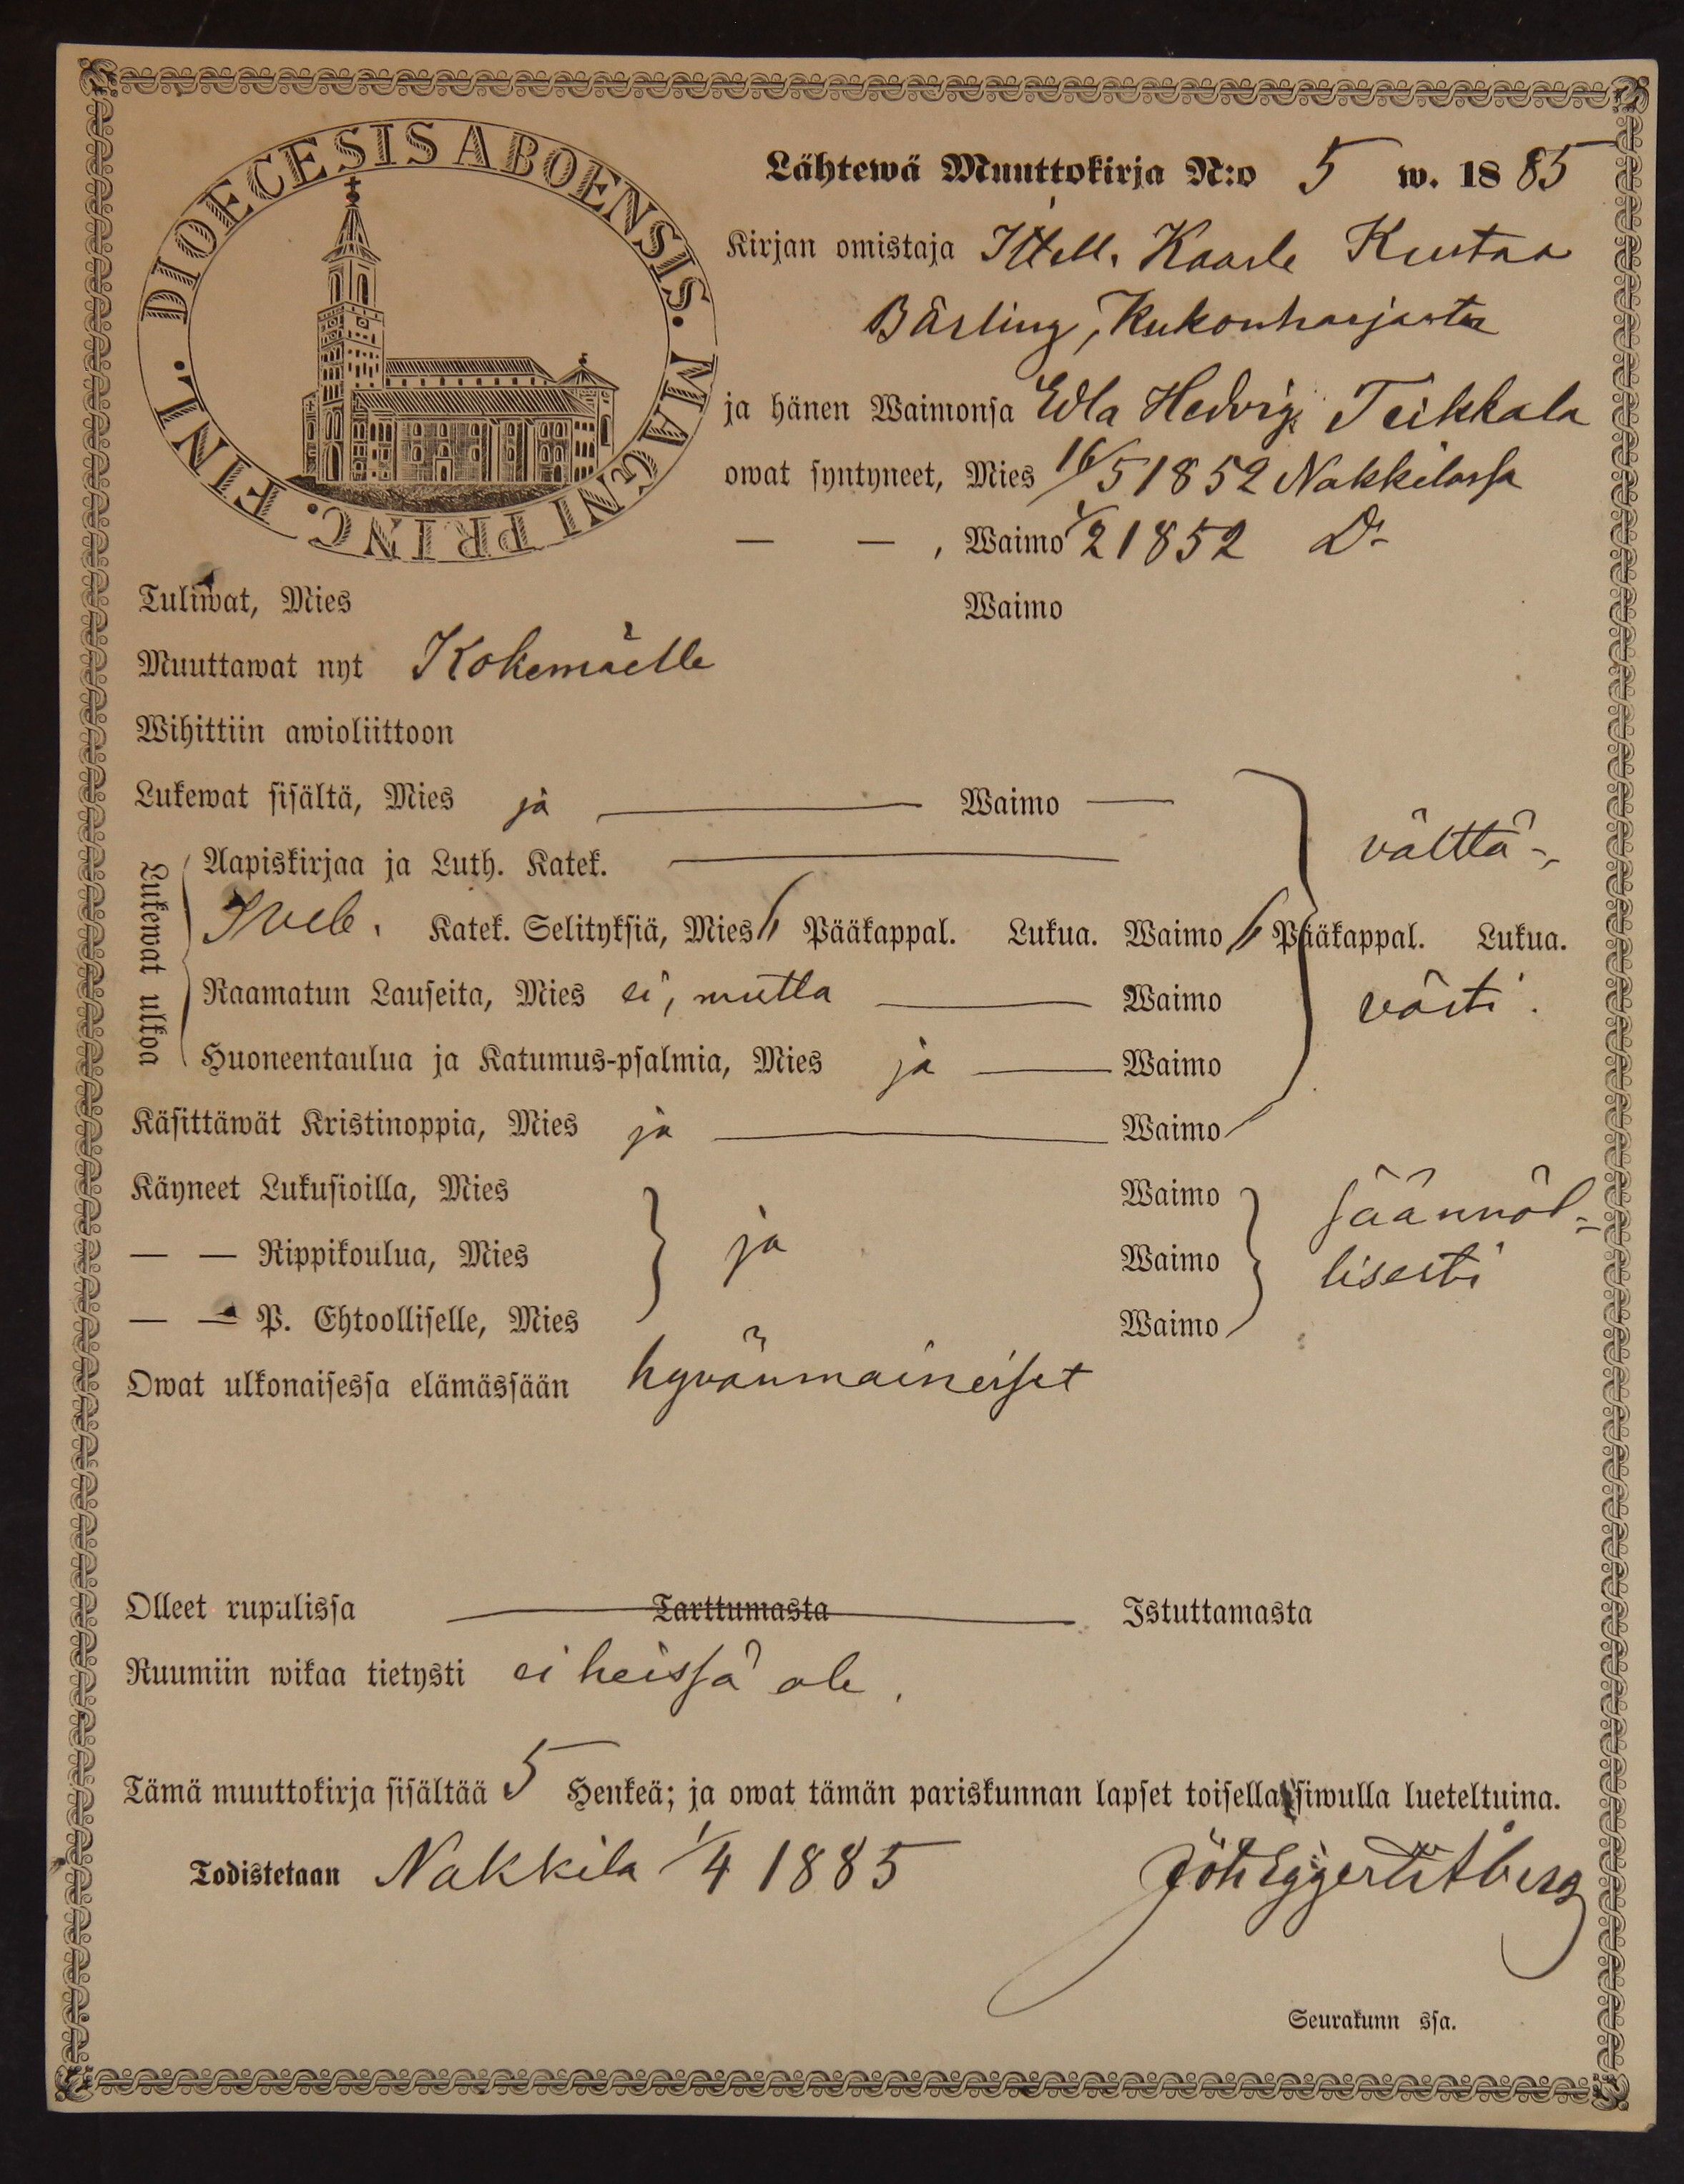 DIOECESIS ABOENSIS. MAGNI PRINC. FINL.
Lähtewä Muuttokirja N:o 5 w. 1885
Kirjan omistaja Itsell. Kaarle Kustaa
Bärling, Kukonharjasta
ja hänen Waimonsa Edla Hedvig Teikkala
owat syntyneet, Mies 16/5 1852 Nakkilassa
— — , Waimo 1/2 1852 Do
Tuliwat, Mies Waimo
Muuttawat nyt Kokemäelle
Wihittiin awioliittoon
Lukewat sisältä, Mies ja Waimo
välttä-
Lukewat ulkoa
Aapiskirjaa ja Luth. Katek.
Katek. Selityksiä, Mies 6 Pääkappal. Lukua. Waimo 6 Pääkappal. Lukua.
Raamatun Lauseita, Mies ei, mutta Waimo
västi.
Huoneentaulua ja Katumus-psalmia, Mies ja Waimo
Käsittäwät Kristinoppia, Mies ja Waimo
Käyneet Lukusioilla, Mies Waimo säännöl-
— — Rippikoulua, Mies ja Waimo lisesti
— — P. Ehtoolliselle, Mies Waimo
Owat ulkonaisessa elämässään hyvänmaineiset
Olleet rupulissa Tarttumasta Istuttamasta
Ruumiin wikaa tietysti ei heissä ole.
Tämä muuttokirja sisältää 5 Henkeä; ja owat tämän pariskunnan lapset toisella siwulla lueteltuina.
Todistetaan Nakkila 1/4 1885 Joh Eggert Åberg
Seurakunn ssa.